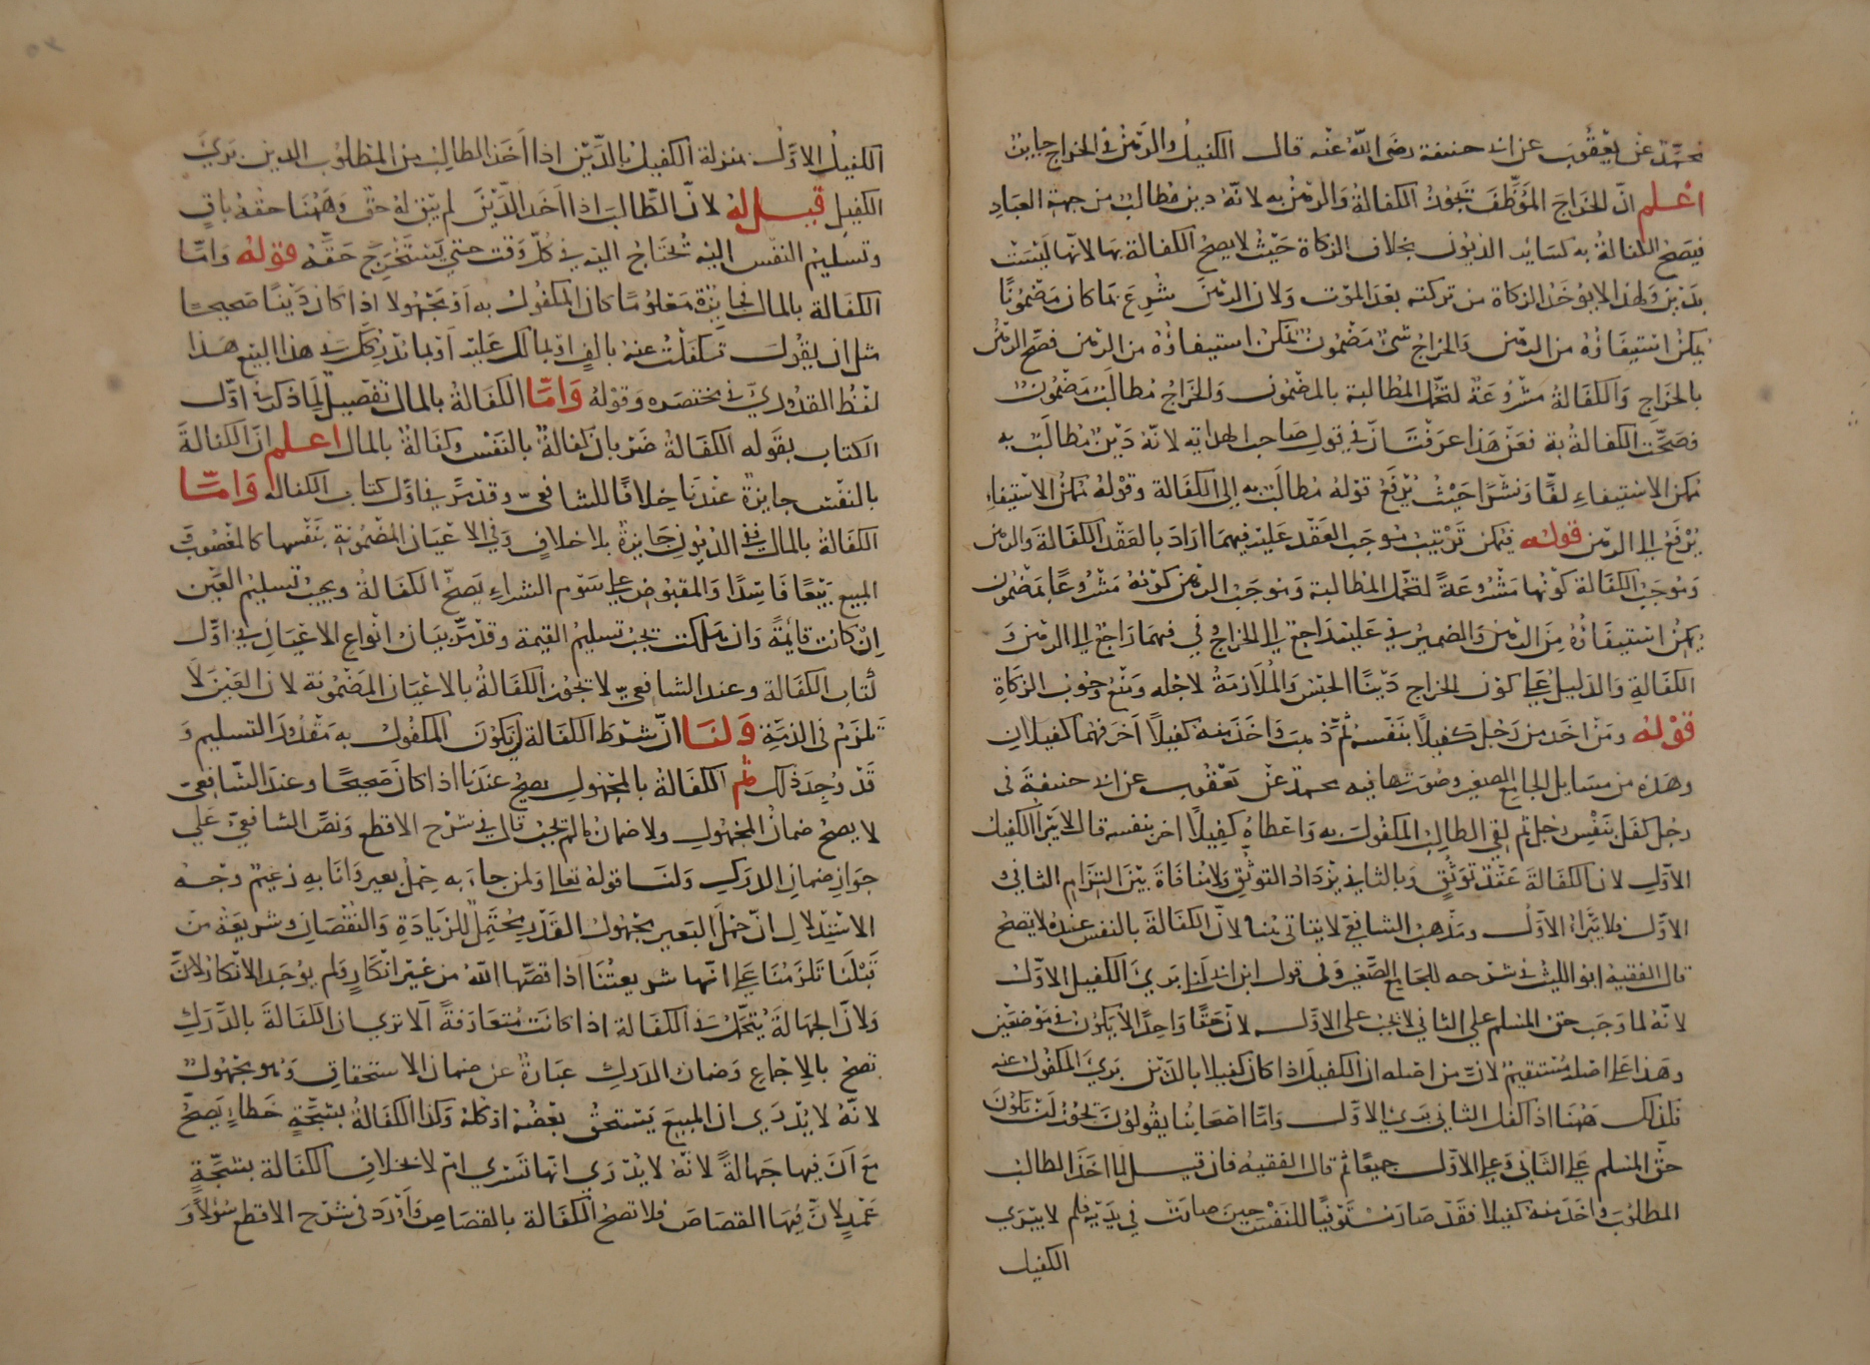 محمد عن يعقوب عن ابى حنيفة رضى الله عنه قال الكفيل والرهن فى الخراج جايز
اعلم ان الخراج الموظف تجوز الكفالة والرهن به لانه دين مطالب من جهة العباد
فيصح الكفالة به كساير الديون بخلاف الزكاة حيث لا يصح الكفالة بها لانها ليست
بدين ولهذا لا يوخذ الزكاة من تركته بعد الموت ولان الرهن شرع بما كان مضمونا
يمكن استيفاؤه من الرهن والخراج شى مضمون يمكن استيفاؤه من الرهن فصح الرهن
بالخراج والكفالة مشروعة لتحمل المطالبة بالمضمون والخراج مطالب مضمون
فصحت الكفالة به فعن هذا عرفت ان فى قول صاحب الهداية لانه دين مطالب به
ممكن الاستيفاء لفا ونشرا حيث يرفع قوله مطالب به الى الكفالة وقوله ممكن الاستيفاء
يرفع الى الرهن قوله فيمكن ترتيب موجب العقد عليه فيهما اراد بالعقد الكفالة والرهن
وموجب الكفالة كونها مشروعة لتحمل المطالبة وموجب الرهن كونه مشروعا بمضمون
يمكن استيفاؤه من الرهن والضمير فى عليه راجع الى الخراج وفى فيهما راجع الى الرهن و
الكفالة والدليل على كون الخراج دينا الحبس والملازمة لاجله ومنع وجوب الزكاة
قوله ومن اخذ من رجل كفيلا بنفسه ثم ذهب واخذ منه كفيلا اخر فهما كفيلان
وهذه من مسايل الجامع الصغير وصورتها فيه محمد عن يعقوب عن ابى حنيفة فى
رجل كفل بنفس رجل ثم لقى الطالب المكفول به واعطاه كفيلا اخر بنفسه قال لا يبرا الكفيل
الاول لان الكفالة عقد توثق وبالثانى يزداد التوثق ولا منافاة بين التزام الثانى و
الاول فلا يبرا الاول ومذهب الشافعى لا يتاتى هنا لان الكفالة بالنفس عنده لا تصح
قال الفقيه ابو الليث فى شرحه للجامع الصغير وفى قول ابن ابى ليلى برى الكفيل الاول
لانه لما وجب حق المسلم على الثانى لا يجب على الاول لان حقا واحدا لا يكون فى موضعين
وهذا على اصله مستقيم لان من اصله ان الكفيل اذا كان كفيلا بالدين برى المكفول عنه
فكذلك ههنا اذا كفل الثانى برى الاول واما اصحابنا يقولون يجوز ان تكون
حق المسلم على الثانى وعلى الاول جميعا ثم قال الفقيه فان قيل لما اخذ الطالب
المطلوب واخذ منه كفيلا فقد صار مستوفيا للنفس حين صارت فى يديه فلم لا يبرى
الكفيل
الكفيل الاول بمنزلة الكفيل بالدين اذا اخذ المطالب من المطلوب الدين برى
الكفيل قيل له لان الطالب اذا اخذ الدين لم يبق له حق وههنا حقه باق
وتسليم النفس اليه تحتاج اليه فى كل وقت حتى يستخرج حقه قوله واما
الكفالة بالمال فجايزة معلوما كان المكفول به او مجهولا اذا كان دينا صحيحا
مثل ان يقول تكفلت عنه بالف او بما لك عليه او بما يدركك فى هذا البيع هذا
لفظ القدورى فى مختصره وقوله واما الكفالة بالمال تفصيل لما ذكر فى اول
الكتاب بقوله الكفالة ضربان كفالة بالنفس وكفالة بالمال اعلم ان الكفالة
بالنفس جايزة عندنا خلافا للشافعى وقد مر فى اول كتاب الكفاله واما
الكفالة بالمال ففى الديون جايزة بلا خلاف وفى الاعيان المضمونة بنفسها كالمغصوب و
المبيع بيعا فاسدا والمقبوض على سوم الشراء يصح الكفالة ويجب تسليم العين
ان كانت قايمة وان هلكت يجب تسليم القيمة وقد مر بيان انواع الاعيان فى اول
كتاب الكفالة وعند الشافعى لا تجوز الكفالة بالاعيان المضمونة لان العين لا
تلزم فى الذمة ولنا ان شرط الكفالة ان يكون المكفول به مقدور التسليم و
قد وجد ذلك ثم الكفالة بالمجهول يصح عندنا اذا كان صحيحا وعند الشافعى
لا يصح ضمان المجهول ولا ضمان ما لم يجب قال فى شرح الاقطع ونص الشافعى على
جواز ضمان الدرك ولنا قوله تعالى ولمن جاء به حمل بعير وانا به زعيم وجه
الاستدلال ان حمل البعير مجهول القدر يحتمل للزيادة والنقصان وشريعة من
قبلنا تلزمنا على انها شريعتنا اذا قصها الله من غير انكار فلم يوجد الانكار لان
ولان الجهالة يتحمل فى الكفالة اذا كانت متعارفة الا ترى ان الكفالة بالدرك
تصح بالاجماع وضمان الدرك عبارة عن ضمان الاستحقاق وهو مجهول
لانه لا يدرى ان المبيع يستحق بعضه او كله وكذا الكفالة بشجة خطاء يصح
مع ان فيها جهالة لانه لا يدرى انها تسرى ام لا بخلاف الكفالة بشجة
عمد لان فيها القصاص فلا تصح الكفالة بالقصاص واورد فى شرح الاقطع سؤلا و